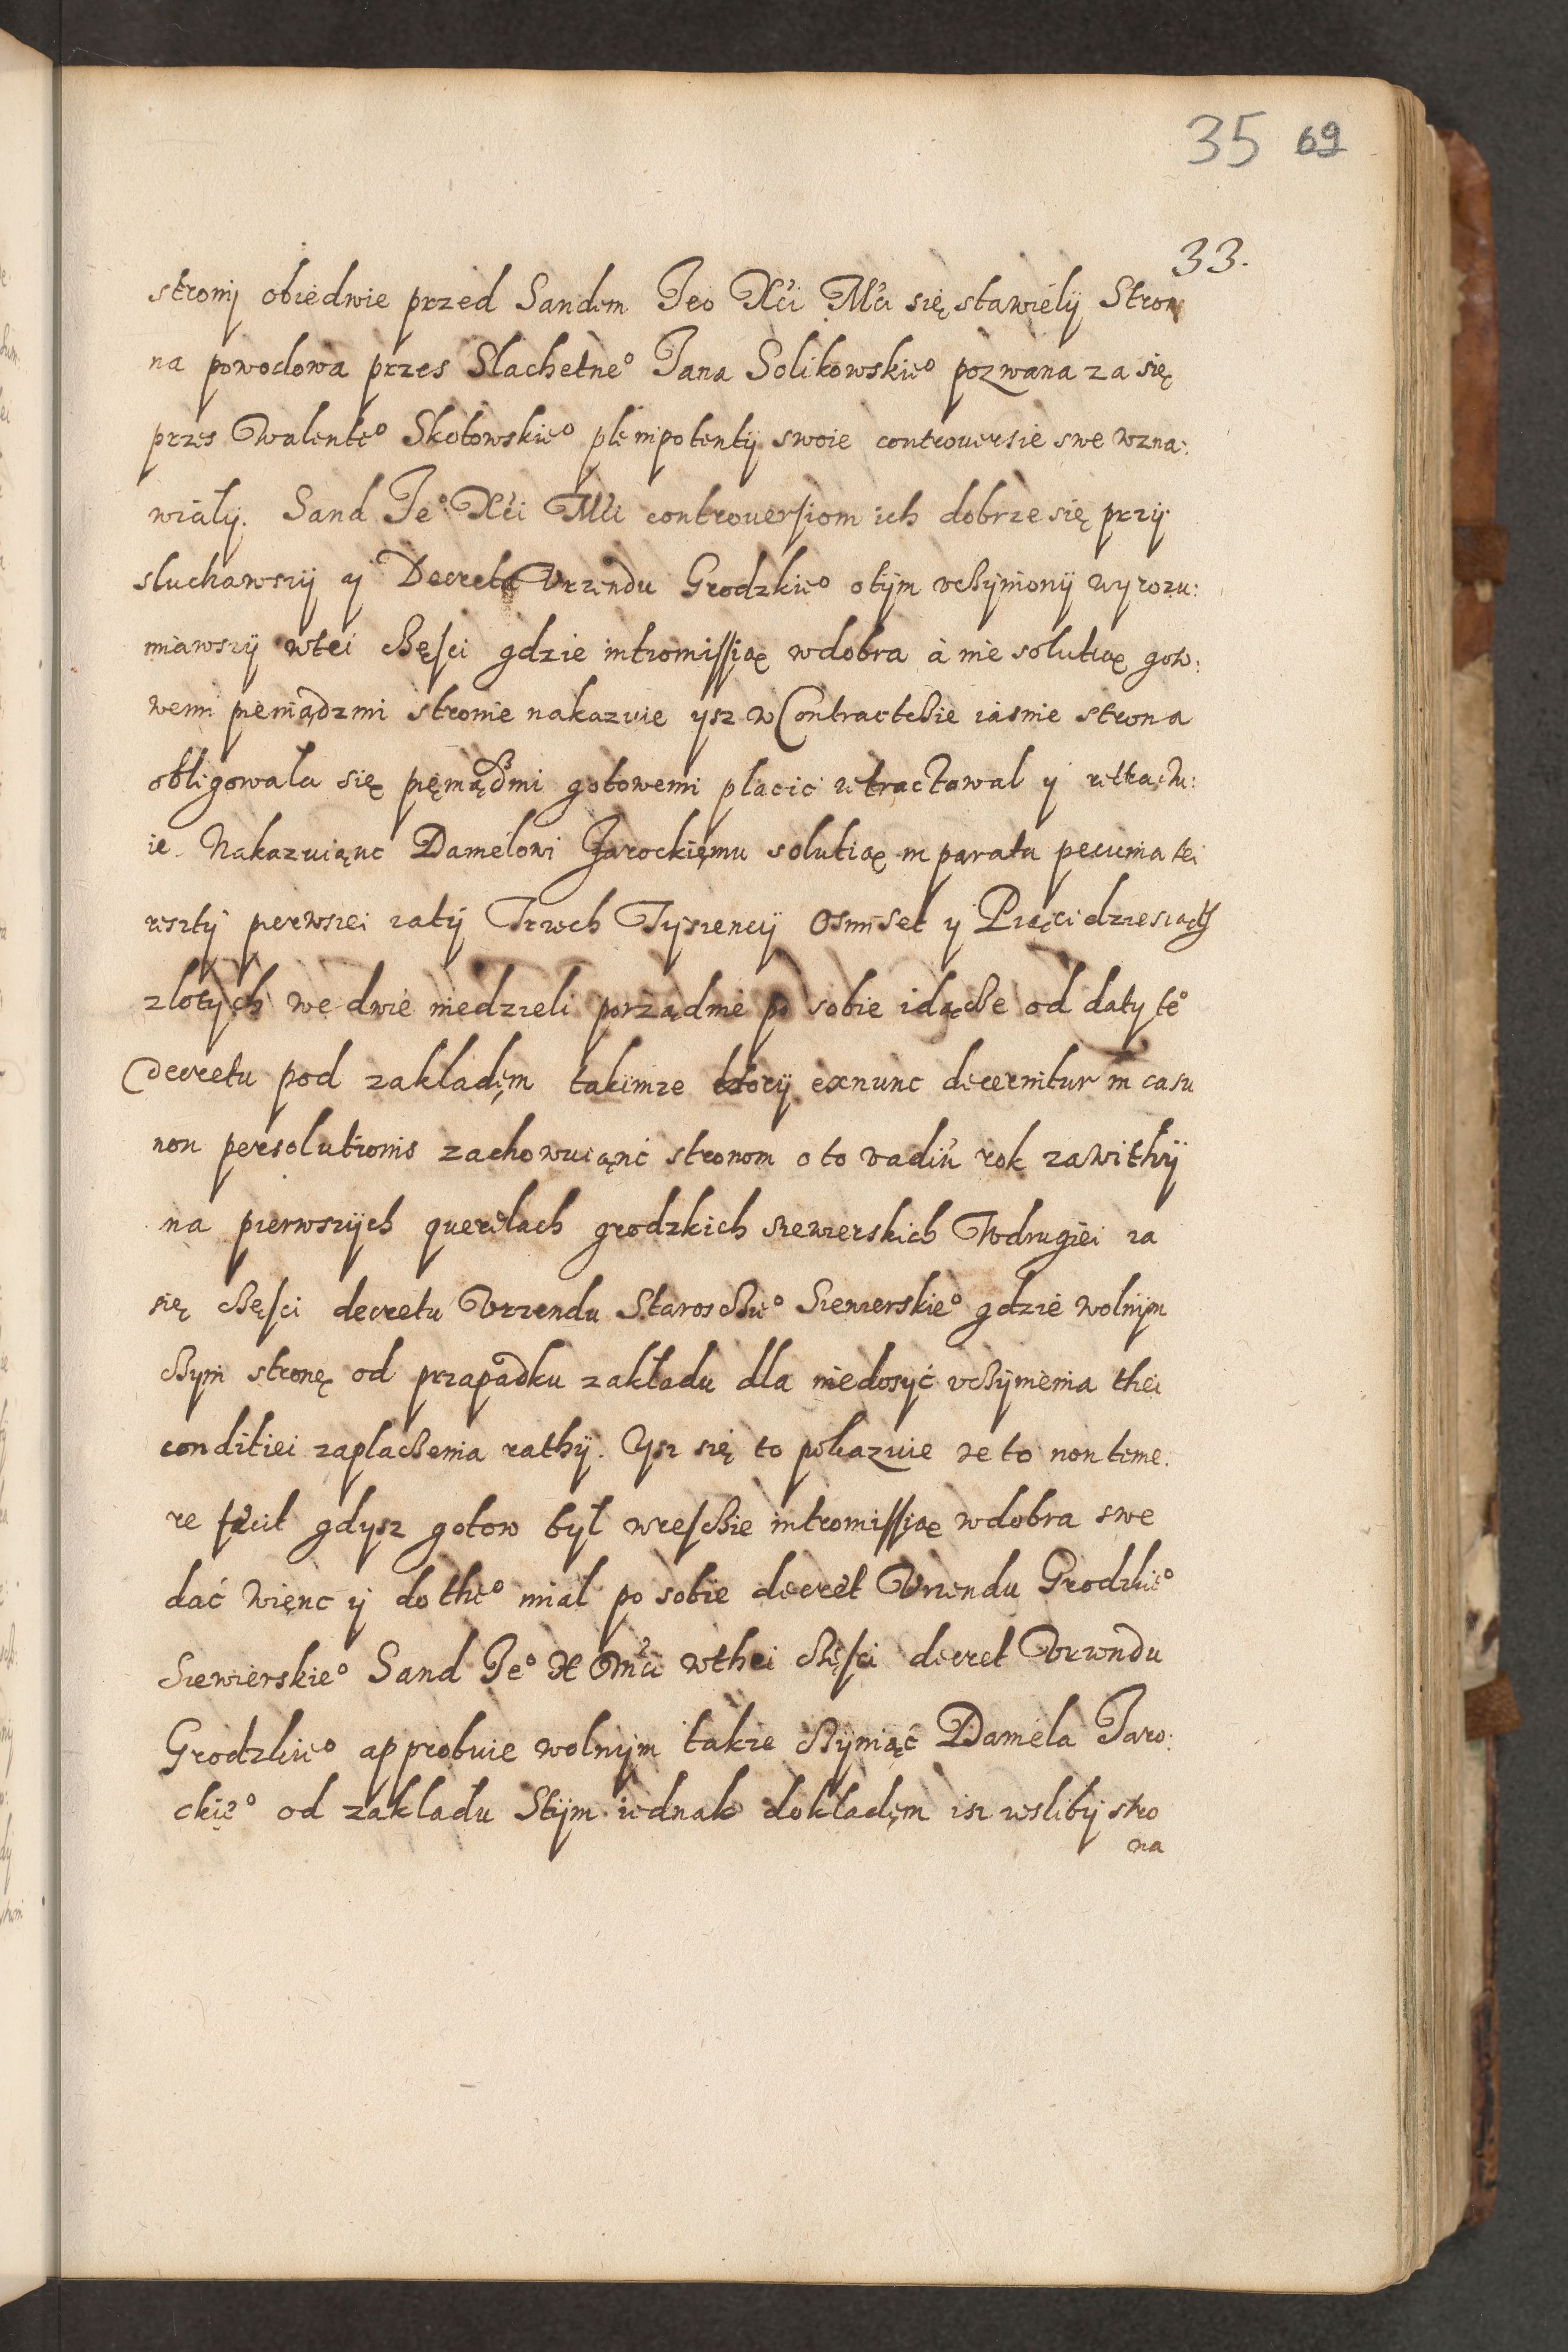 35 69
33.
strony obiedwie przed Sandem Jeo Xći Mći się stawiely Stron
na powodowa przes Slachetne° Jana Solikowskie° pozwana za się
przes Walente° Skotowskie° plenipotenty swoie controuersie swe wzna:
wiały. Sand Je° Xći Mći controuersiom ich dobrze się przy
sluchawszy y Decreta Vrzendu Grodzkie° otym vczyniony wyrozu:
miawszy wtei częsci gdzie intromissią wdobra à nie solutią goto:
wemi pieniądzmi stronie nakazuie ysz w Contractczie iasnie strona
obligowała się pieniądzmi gotowemi placic retractowal y retractu:
ie. Nakazuiąnc Danielowi Jarockiemu solutią in parata pecunia tei
reszty perwszei raty Trzech Tysiency Osmset y Pięcidziesiąth
zlotych we dwie niedzieli porządnie po sobie idącze od daty te°
decretu pod zakladęm takimze ktory exnunc decernitur in casu
non persolutionis zachowuiąnc stronom o to vadiu rok zawithy
na pierwszych querelach grodzkich siewierskich Wdrugiei za
się częsci decretu Vrzendu Starosczie° Siewierskie° gdzie wolnym
czyni stronę od przapadku zakładu dla niedosyć vczynienia thei
conditiei zaplaczenia rathy. Ysz się to pokazuie ze to non teme:
re fecit gdysz gotow był wresczie intromissią wdobra swe
dać więnc y do the° miał po sobie decret Vrzendu Grodzkie°
Siewierskie° Sand Je° X Mći wthei częsci decret Vrzendu
Grodzkie° approbuie wolnym takze czyniąc Daniela Jaro:
ckie° od zakladu Stym iednak dokladęm isz iesliby stro
na